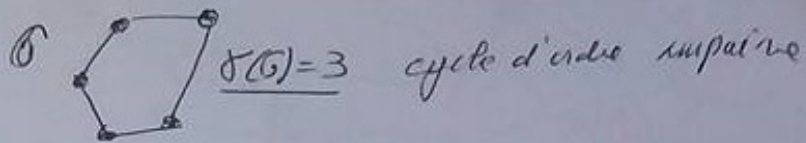 G γ(G)=3 cycle d'ordre impaire